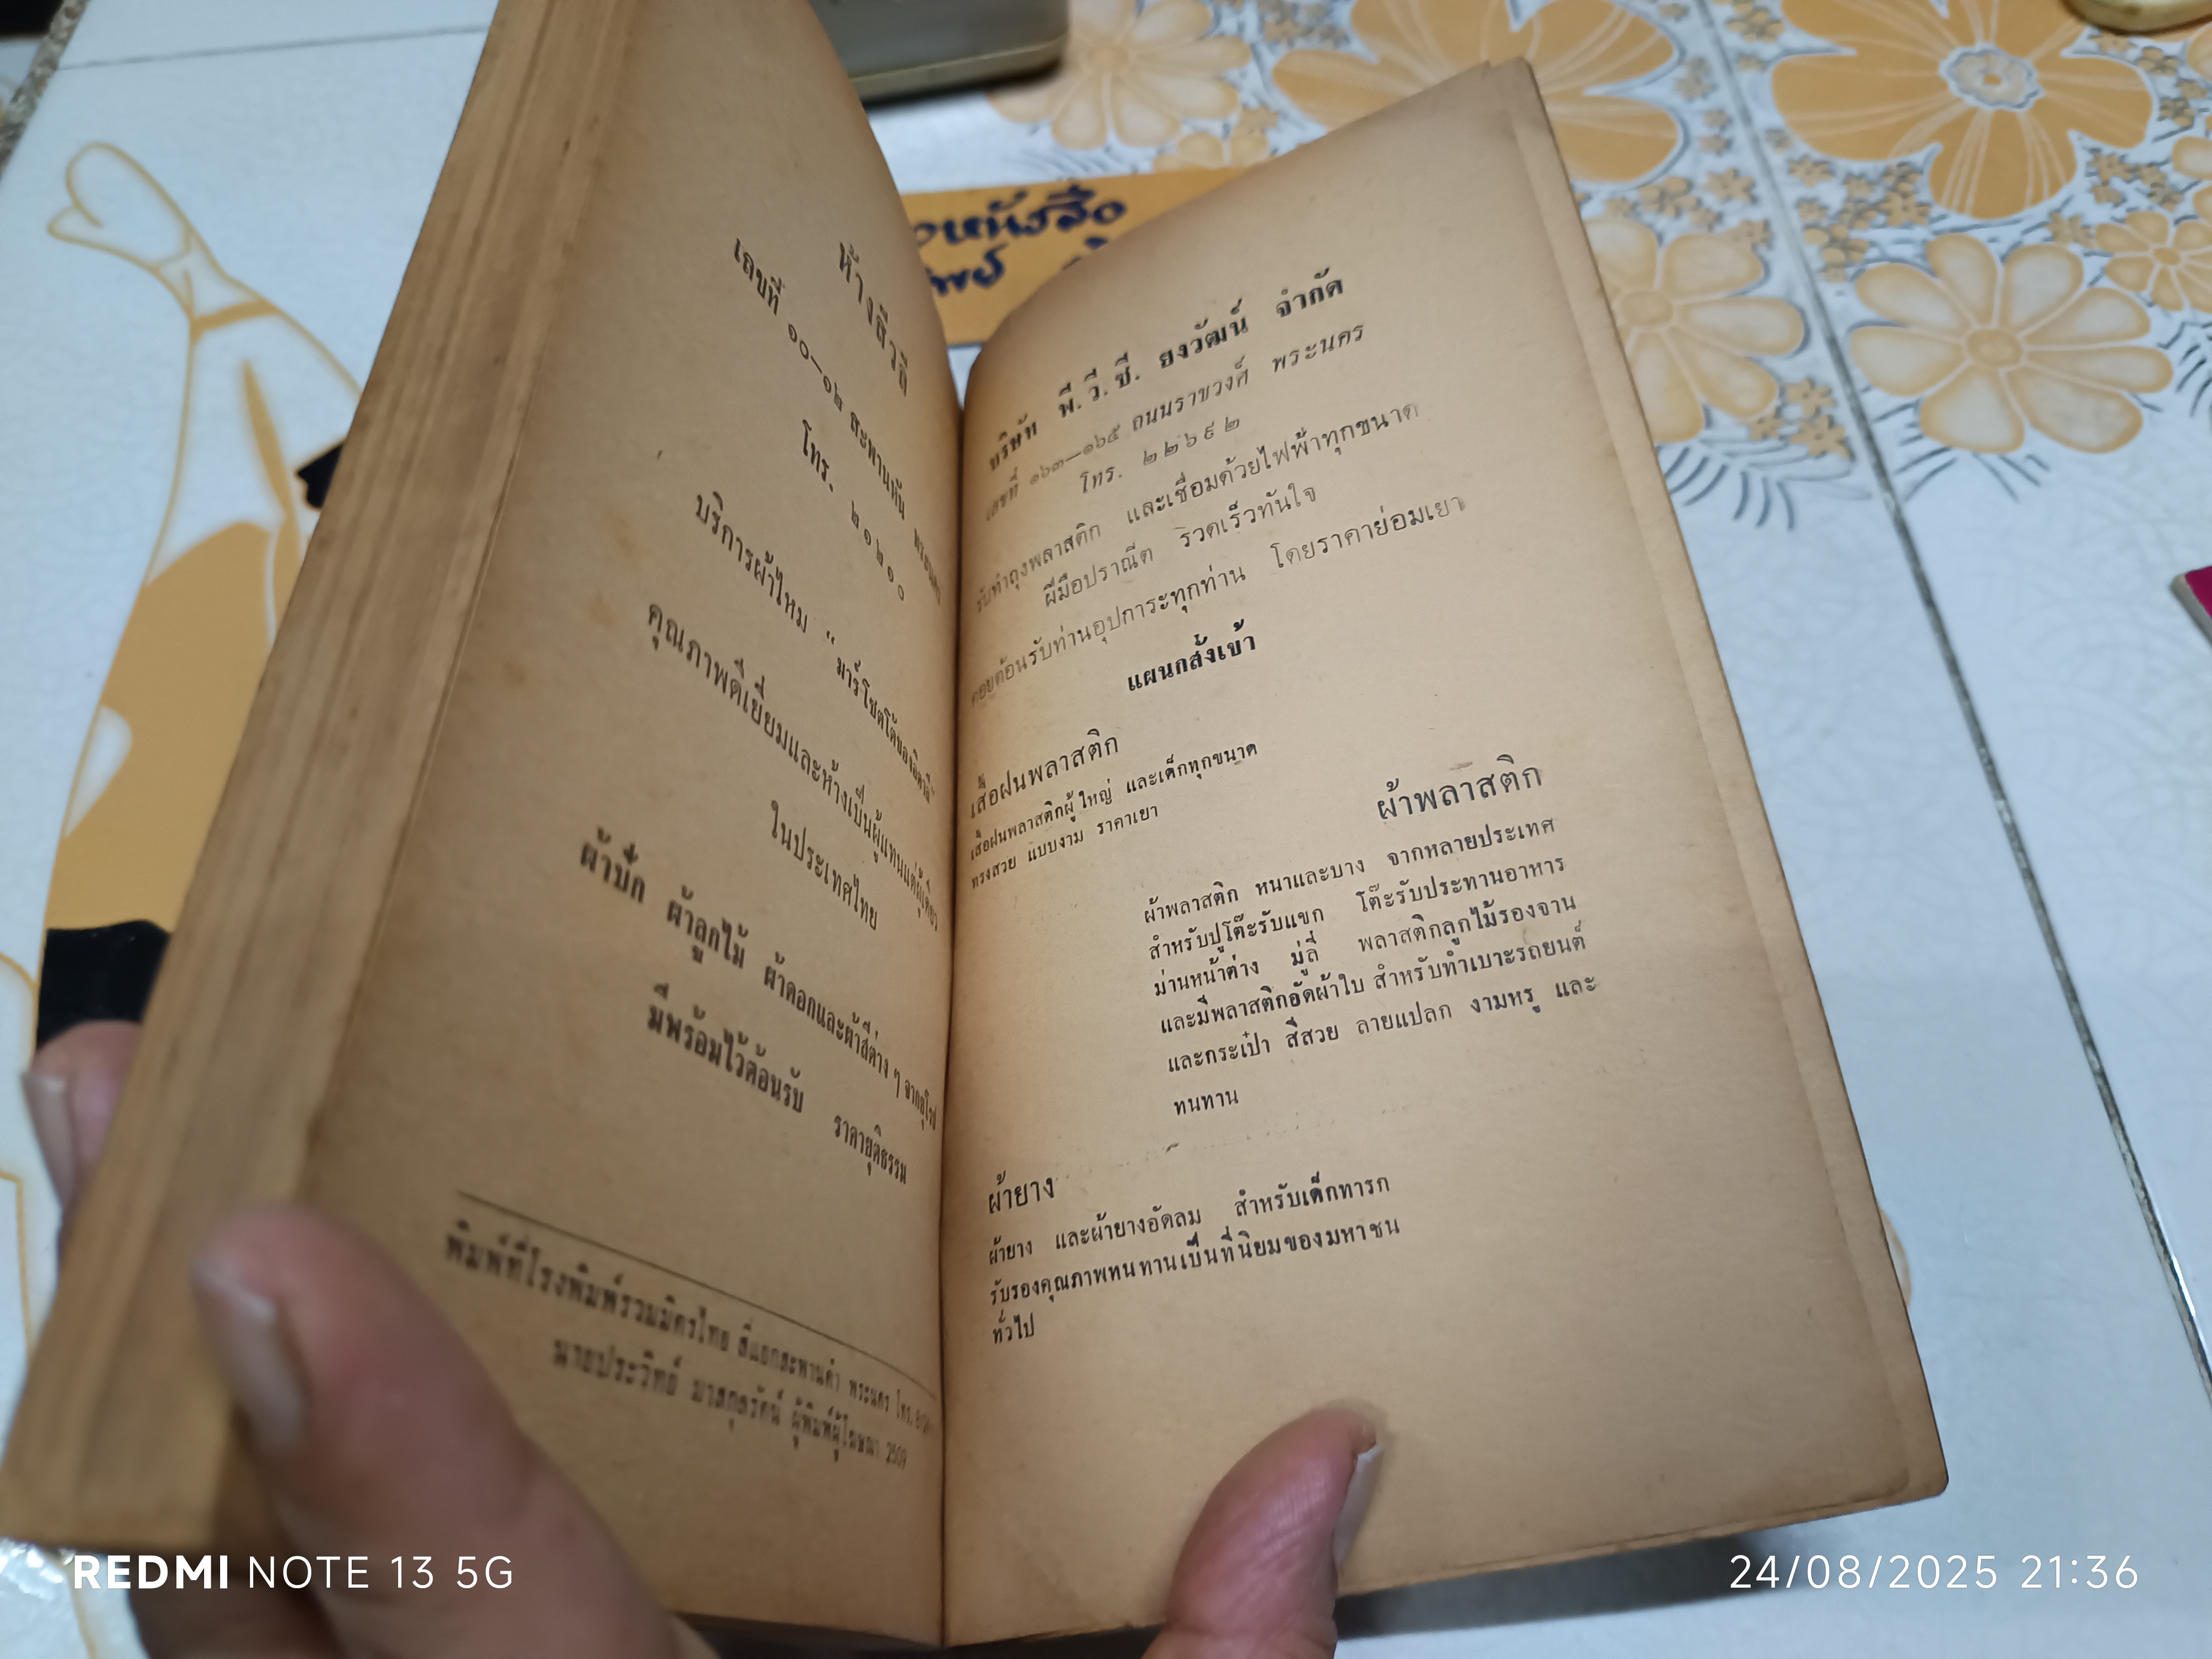 ห้างสีวลี
เลขที่ ๑๐—๑๒ สะพานหัน พระนคร
โทร. ๒๑๒๑๐
บริการผ้าไหม "มาร์โซตโต้ของอิตาลี"
คุณภาพดีเยี่ยมและห้างเป็นผู้แทนแต่ผู้เดียว
ในประเทศไทย
ผ้าปัก ผ้าลูกไม้ ผ้าดอกและผ้าสีต่าง ๆ จากยุโรป
มีพร้อมไว้ต้อนรับ ราคายุติธรรม
พิมพ์ที่โรงพิมพ์รวมมิตรไทย สี่แยกสะพานดำ พระนคร โทร.
นายประวิทย์ มาสกุลรัตน์ ผู้พิมพ์ผู้โฆษณา 2509
หนังสือ
บริษัท พี.วี.ซี. ยงวัฒน์ จำกัด
เลขที่ ๑๖๓—๑๖๕ ถนนราชวงศ์ พระนคร
โทร. ๒๒๖๙๒
รับทำถุงพลาสติก และเชื่อมด้วยไฟฟ้าทุกขนาด
ฝีมือปราณีต รวดเร็วทันใจ
คอยต้อนรับท่านอุปการะทุกท่าน โดยราคาย่อมเยา
แผนกสั่งเข้า
เสื้อฝนพลาสติก
เสื้อฝนพลาสติกผู้ใหญ่ และเด็กทุกขนาด
ทรงสวย แบบงาม ราคาเยา
ผ้าพลาสติก
ผ้าพลาสติก หนาและบาง จากหลายประเทศ
สำหรับปูโต๊ะรับแขก โต๊ะรับประทานอาหาร
ม่านหน้าต่าง มู่ลี่ พลาสติกลูกไม้รองจาน
และมีพลาสติกอัดผ้าใบ สำหรับทำเบาะรถยนต์
และกระเป๋า สีสวย ลายแปลก งามหรู และ
ทนทาน
ผ้ายาง
ผ้ายาง และผ้ายางอัดลม สำหรับเด็กทารก
รับรองคุณภาพทนทานเป็นที่นิยมของมหาชน
ทั่วไป
REDMI NOTE 13 5G
24/08/2025 21:36